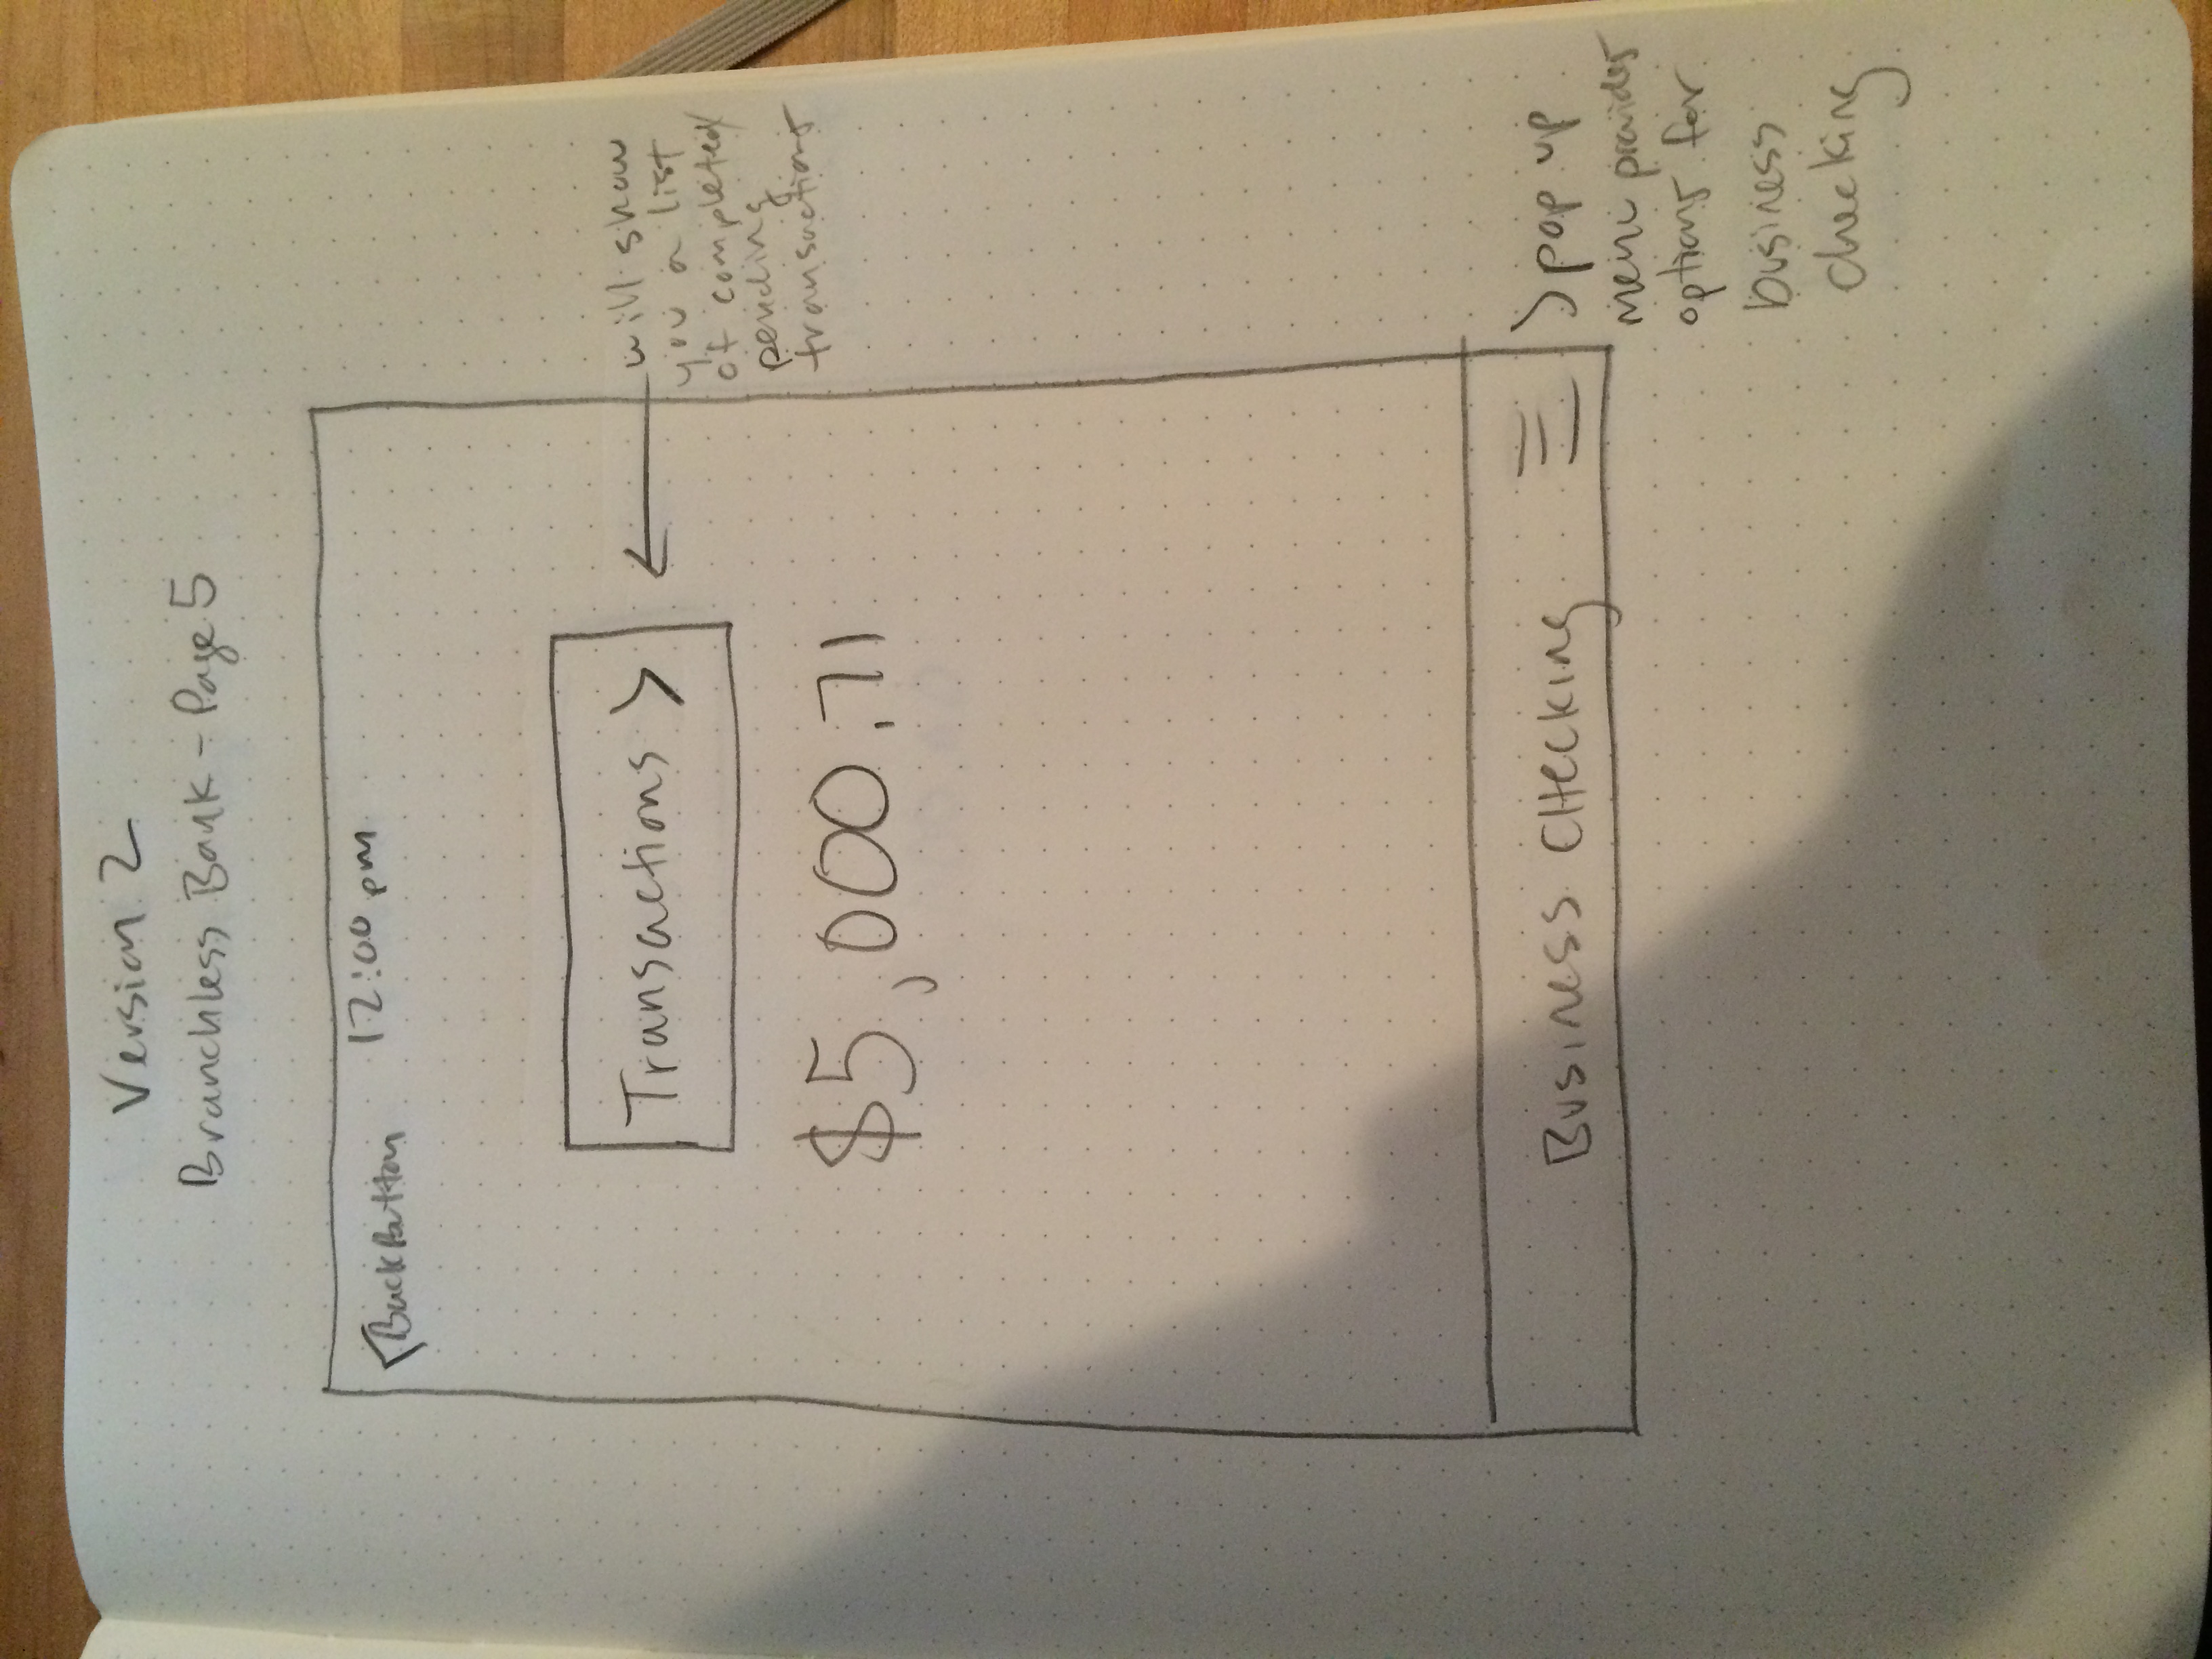 Version 2
Branchless Bank - Page 5
12:00 pm
<BackButton
Transactions >
will show
you a list
of completed/
pending
transactions
$5,000.71
BUSINESS CHECKING
>pop up
menu provides
options for
business
checking